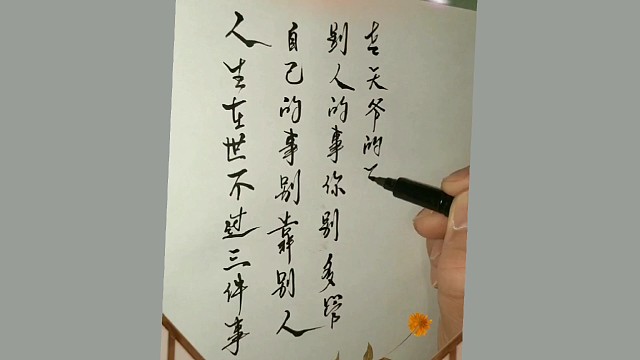 人生在世不过三件事
自己的事别靠别人
别人的事你别多管
老天爷的